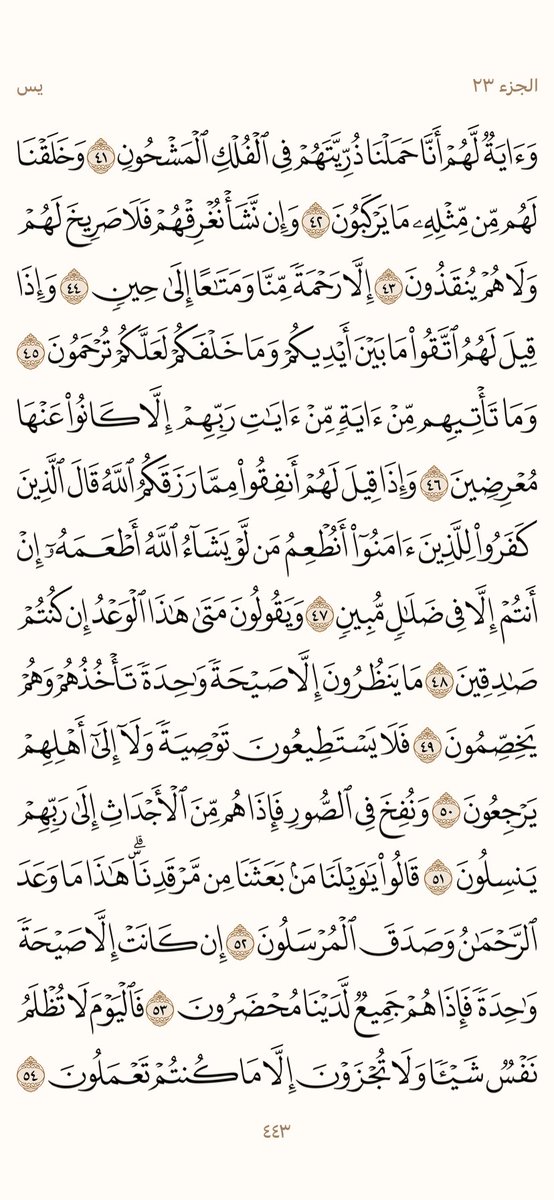 الجزء ٢٣
يس
وَءَايَةٌ لَّهُمْ أَنَّا حَمَلْنَا ذُرِّيَّتَهُمْ فِي ٱلْفُلْكِ ٱلْمَشْحُونِ ٤١ وَخَلَقْنَا
لَهُم مِّن مِّثْلِهِۦ مَا يَرْكَبُونَ ٤٢ وَإِن نَّشَأْ نُغْرِقْهُمْ فَلَا صَرِيخَ لَهُمْ
وَلَا هُمْ يُنقَذُونَ ٤٣ إِلَّا رَحْمَةً مِّنَّا وَمَتَٰعًا إِلَىٰ حِينٍ ٤٤ وَإِذَا
قِيلَ لَهُمُ ٱتَّقُوا۟ مَا بَيْنَ أَيْدِيكُمْ وَمَا خَلْفَكُمْ لَعَلَّكُمْ تُرْحَمُونَ ٤٥
وَمَا تَأْتِيهِم مِّنْ ءَايَةٍ مِّنْ ءَايَٰتِ رَبِّهِمْ إِلَّا كَانُوا۟ عَنْهَا
مُعْرِضِينَ ٤٦ وَإِذَا قِيلَ لَهُمْ أَنفِقُوا۟ مِمَّا رَزَقَكُمُ ٱللَّهُ قَالَ ٱلَّذِينَ
كَفَرُوا۟ لِلَّذِينَ ءَامَنُوٓا۟ أَنُطْعِمُ مَن لَّوْ يَشَآءُ ٱللَّهُ أَطْعَمَهُۥٓ إِنْ
أَنتُمْ إِلَّا فِي ضَلَٰلٍ مُّبِينٍ ٤٧ وَيَقُولُونَ مَتَىٰ هَٰذَا ٱلْوَعْدُ إِن كُنتُمْ
صَٰدِقِينَ ٤٨ مَا يَنظُرُونَ إِلَّا صَيْحَةً وَٰحِدَةً تَأْخُذُهُمْ وَهُمْ
يَخِصِّمُونَ ٤٩ فَلَا يَسْتَطِيعُونَ تَوْصِيَةً وَلَآ إِلَىٰٓ أَهْلِهِمْ
يَرْجِعُونَ ٥٠ وَنُفِخَ فِي ٱلصُّورِ فَإِذَا هُم مِّنَ ٱلْأَجْدَاثِ إِلَىٰ رَبِّهِمْ
يَنسِلُونَ ٥١ قَالُوا۟ يَٰوَيْلَنَا مَنۢ بَعَثَنَا مِن مَّرْقَدِنَاۗ هَٰذَا مَا وَعَدَ
ٱلرَّحْمَٰنُ وَصَدَقَ ٱلْمُرْسَلُونَ ٥٢ إِن كَانَتْ إِلَّا صَيْحَةً
وَٰحِدَةً فَإِذَا هُمْ جَمِيعٌ لَّدَيْنَا مُحْضَرُونَ ٥٣ فَٱلْيَوْمَ لَا تُظْلَمُ
نَفْسٌ شَيْـًٔا وَلَا تُجْزَوْنَ إِلَّا مَا كُنتُمْ تَعْمَلُونَ ٥٤
٤٤٣